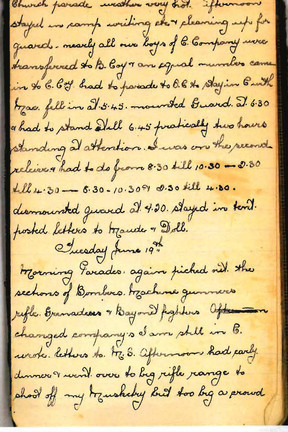 Church parade weather very hot. Afternoon
stayed in camp writing etc & cleaning up for
guard. nearly all our boys of C. Company were
transferred to B. Coy & an equal number came
in to C. Coy had to parade to O.C to stay in C with
Mac. fell in at 5.45. mounted Guard. at 6.30
& had to stand still 6.45 pratically two hours
standing at attention. I was on the second
relieve & had to do from 8.30 till 10.30 — 2.30
till 4.30 — 8.30 - 10.30 & 2.30 till 4.30.
dismounted guard at 4.20. stayed in tent.
posted letters to Maude & Doll.
Tuesday June 19th
Morning Parades. again picked out. the
sections of Bombers. Machine gunners
rifle. Grenadeers & Bayonet fighters
changed company.s I am still in C.
wrote. letters to. M. S. Afternoon had early.
dinner & went over to big rifle range to
shoot off my Musketry but too big a crowd